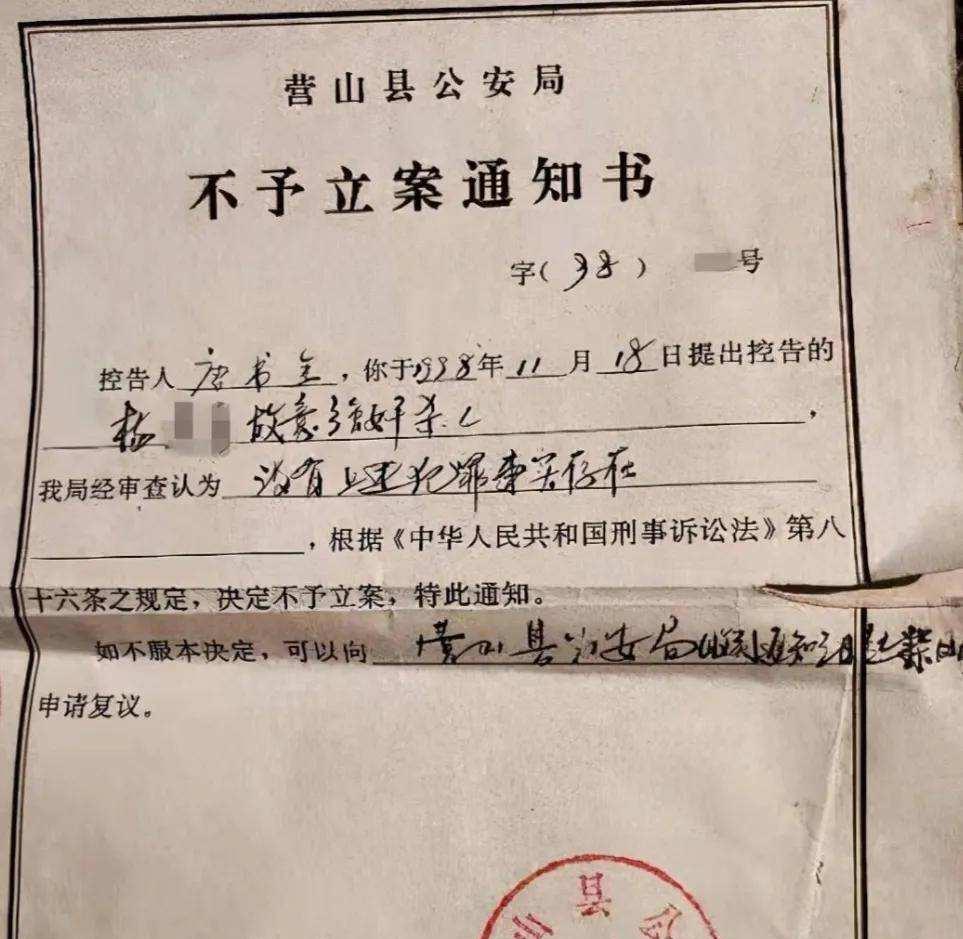 营山县公安局
不予立案通知书
字（38） 号
控告人 唐书全，你于1998年11月18日提出控告的
杨 故意强奸杀人，
我局经审查认为 没有上述犯罪事实存在
，根据《中华人民共和国刑事诉讼法》第八
十六条之规定，决定不予立案，特此通知。
如不服本决定，可以向 营山县公安局
申请复议。
山县公